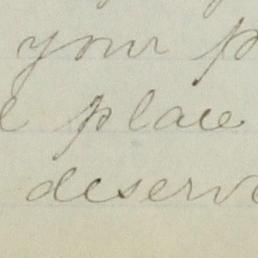 your p
place
deserv